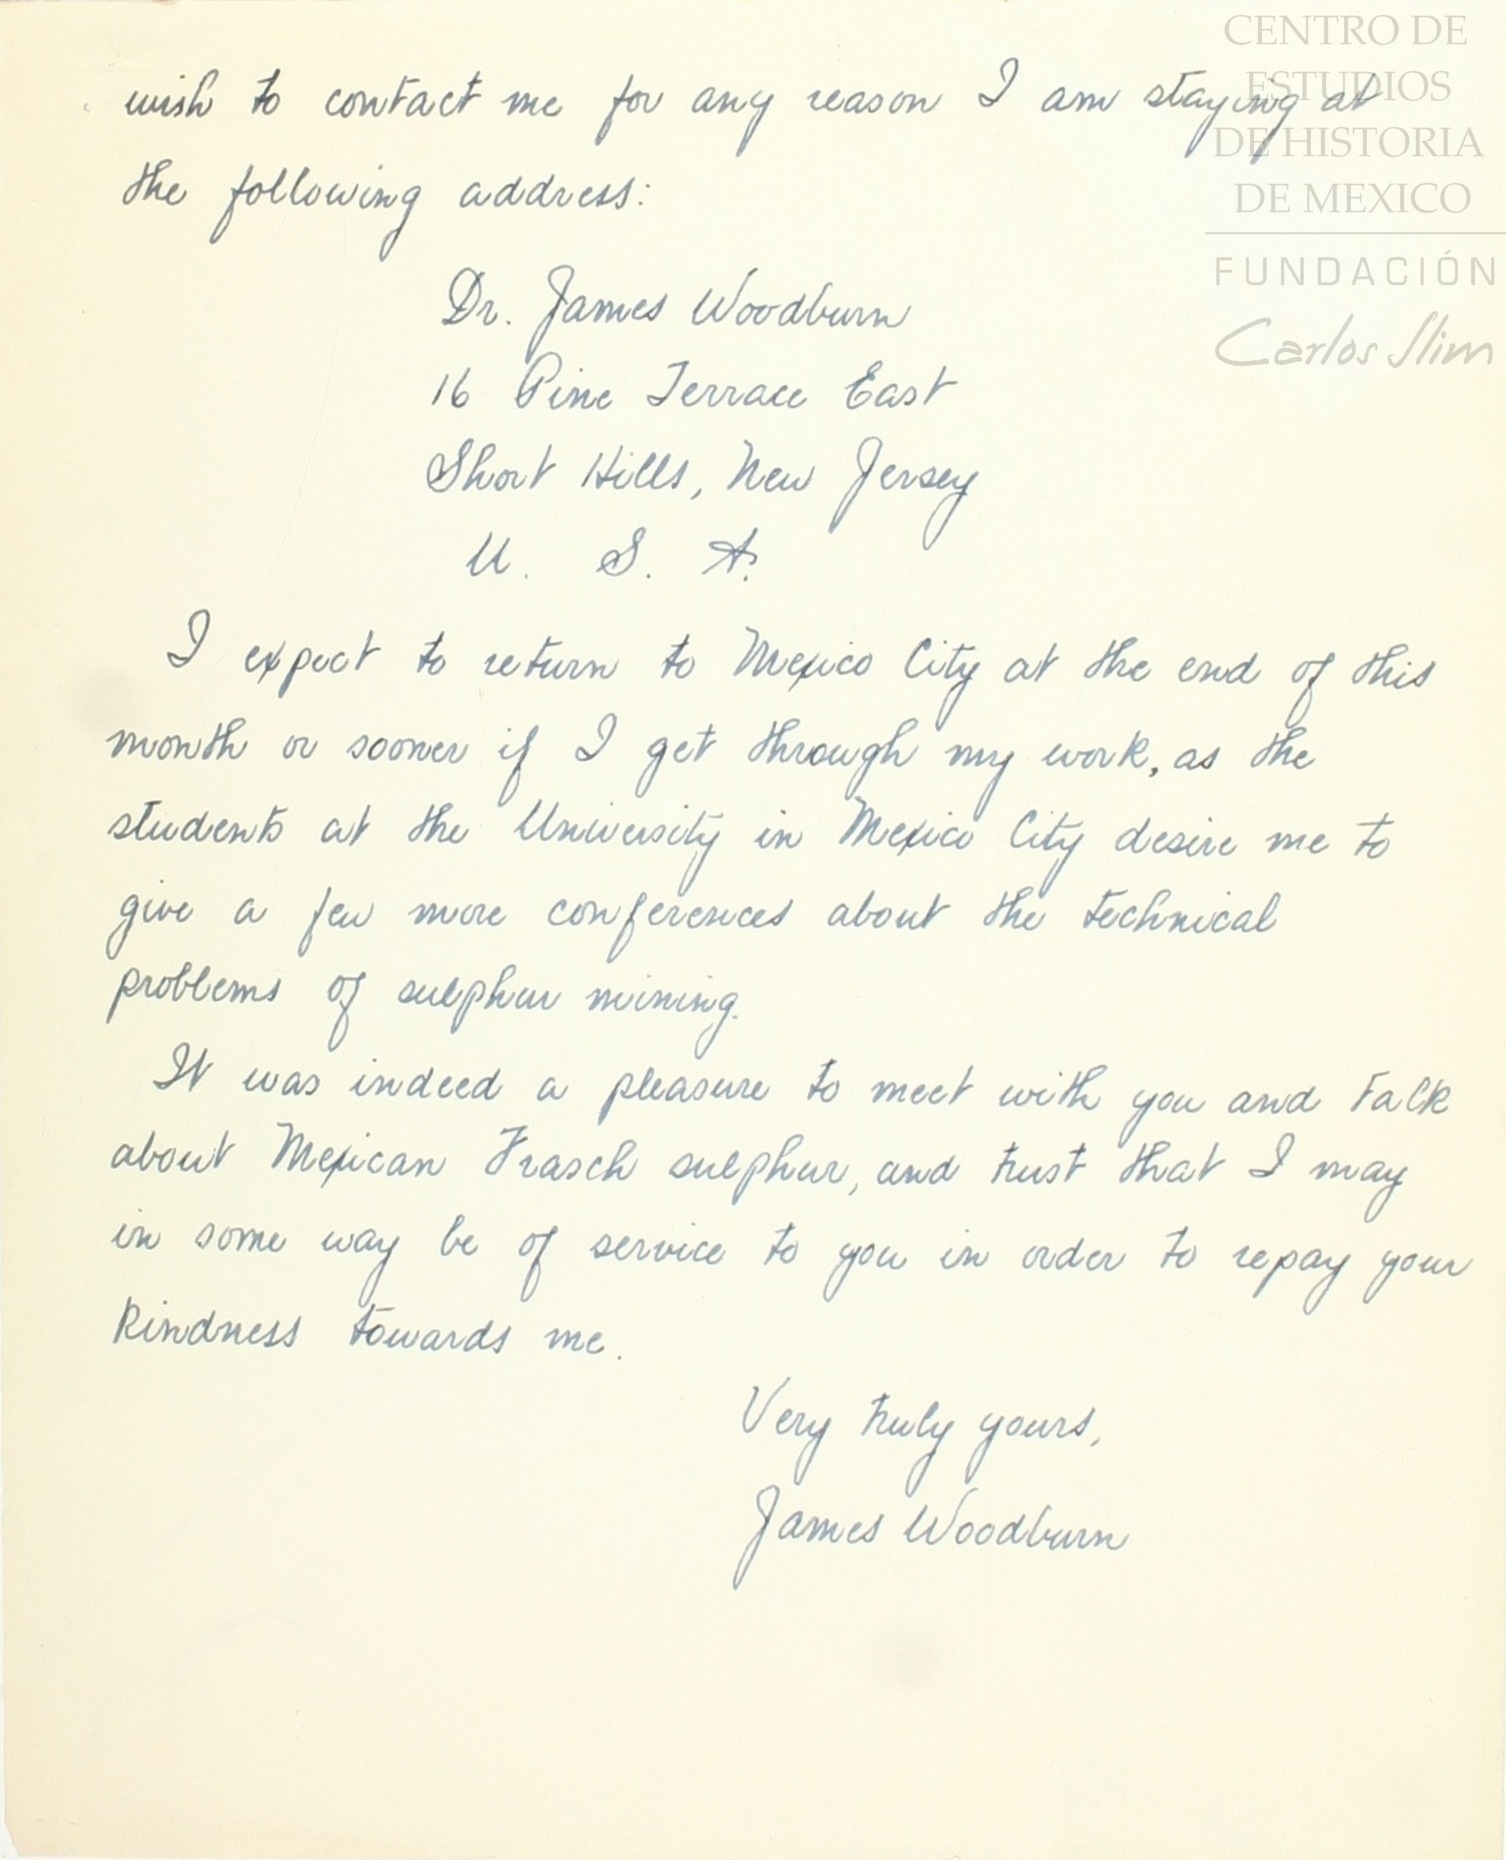 CENTRO DE
ESTUDIOS
DE HISTORIA
DE MEXICO
FUNDACIÓN
Carlos Slim
wish to contact me for any reason I am staying at
the following address:
Dr. James Woodburn
16 Pine Terrace East
Short Hills, New Jersey
U. S. A.
I expect to return to Mexico City at the end of this
month or sooner if I get through my work, as the
students at the University in Mexico City desire me to
give a few more conferences about the technical
problems of sulphur mining.
It was indeed a pleasure to meet with you and talk
about Mexican Frasch sulphur, and trust that I may
in some way be of service to you in order to repay your
kindness towards me.
Very truly yours,
James Woodburn